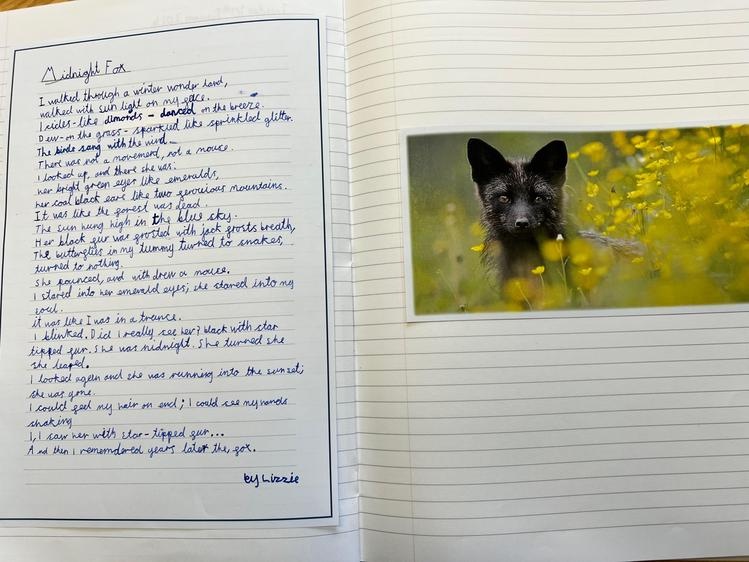 Midnight Fox
I walked through a winter wonder land,
walked with sun light on my face.
Icicles-like dimonds - danced on the breeze.
Dew-on the grass - sparkled like sprinkled glitter.
The birds sang with the wind.
There was not a movement, not a mouse.
I looked up, and there she was:
her bright green eyes like emeralds,
her coal black ears like two ferouious mountains.
It was like the forest was dead.
The sun hung high in the blue sky.
Her black fur was frosted with jack frosts breath,
The butterflies in my tummy turned to snakes,
turned to nothing.
She pounced, and with drew a mouse.
I stared into her emerald eyes; she stared into my
soul.
it was like I was in a trance.
I blinked. Did I really see her? black with star
tipped fur. She was midnight. She turned she
she leaped.
I looked again and she was running into the sunset;
she was gone.
I could feel my hair on end; I could see my hands
shaking
I, I saw her with star-tipped fur...
And then I rememdered years later the, fox.
by Lizzie